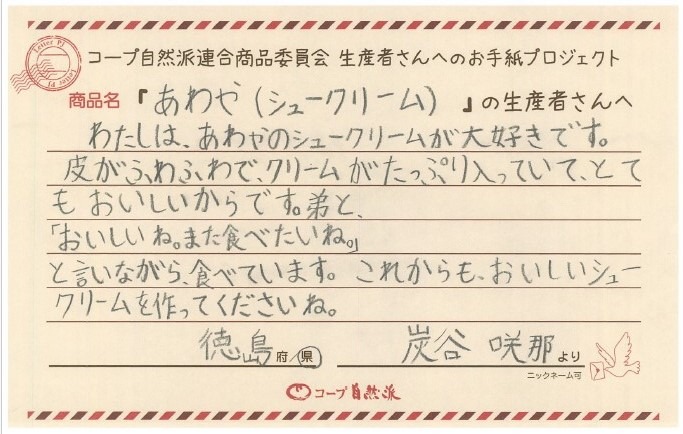 Letter PJ
Letter PJ
コープ自然派連合商品委員会 生産者さんへのお手紙プロジェクト
商品名『あわや(シュークリーム)』の生産者さんへ
わたしは、あわやのシュークリームが大好きです。
皮がふわふわで、クリームがたっぷり入っていて、とて
もおいしいからです。弟と、
「おいしいね。また食べたいね。」
と言いながら、食べています。これからも、おいしいシュー
クリームを作ってくださいね。
徳島 府/県 炭谷 咲那 より
ニックネーム可
コープ自然派